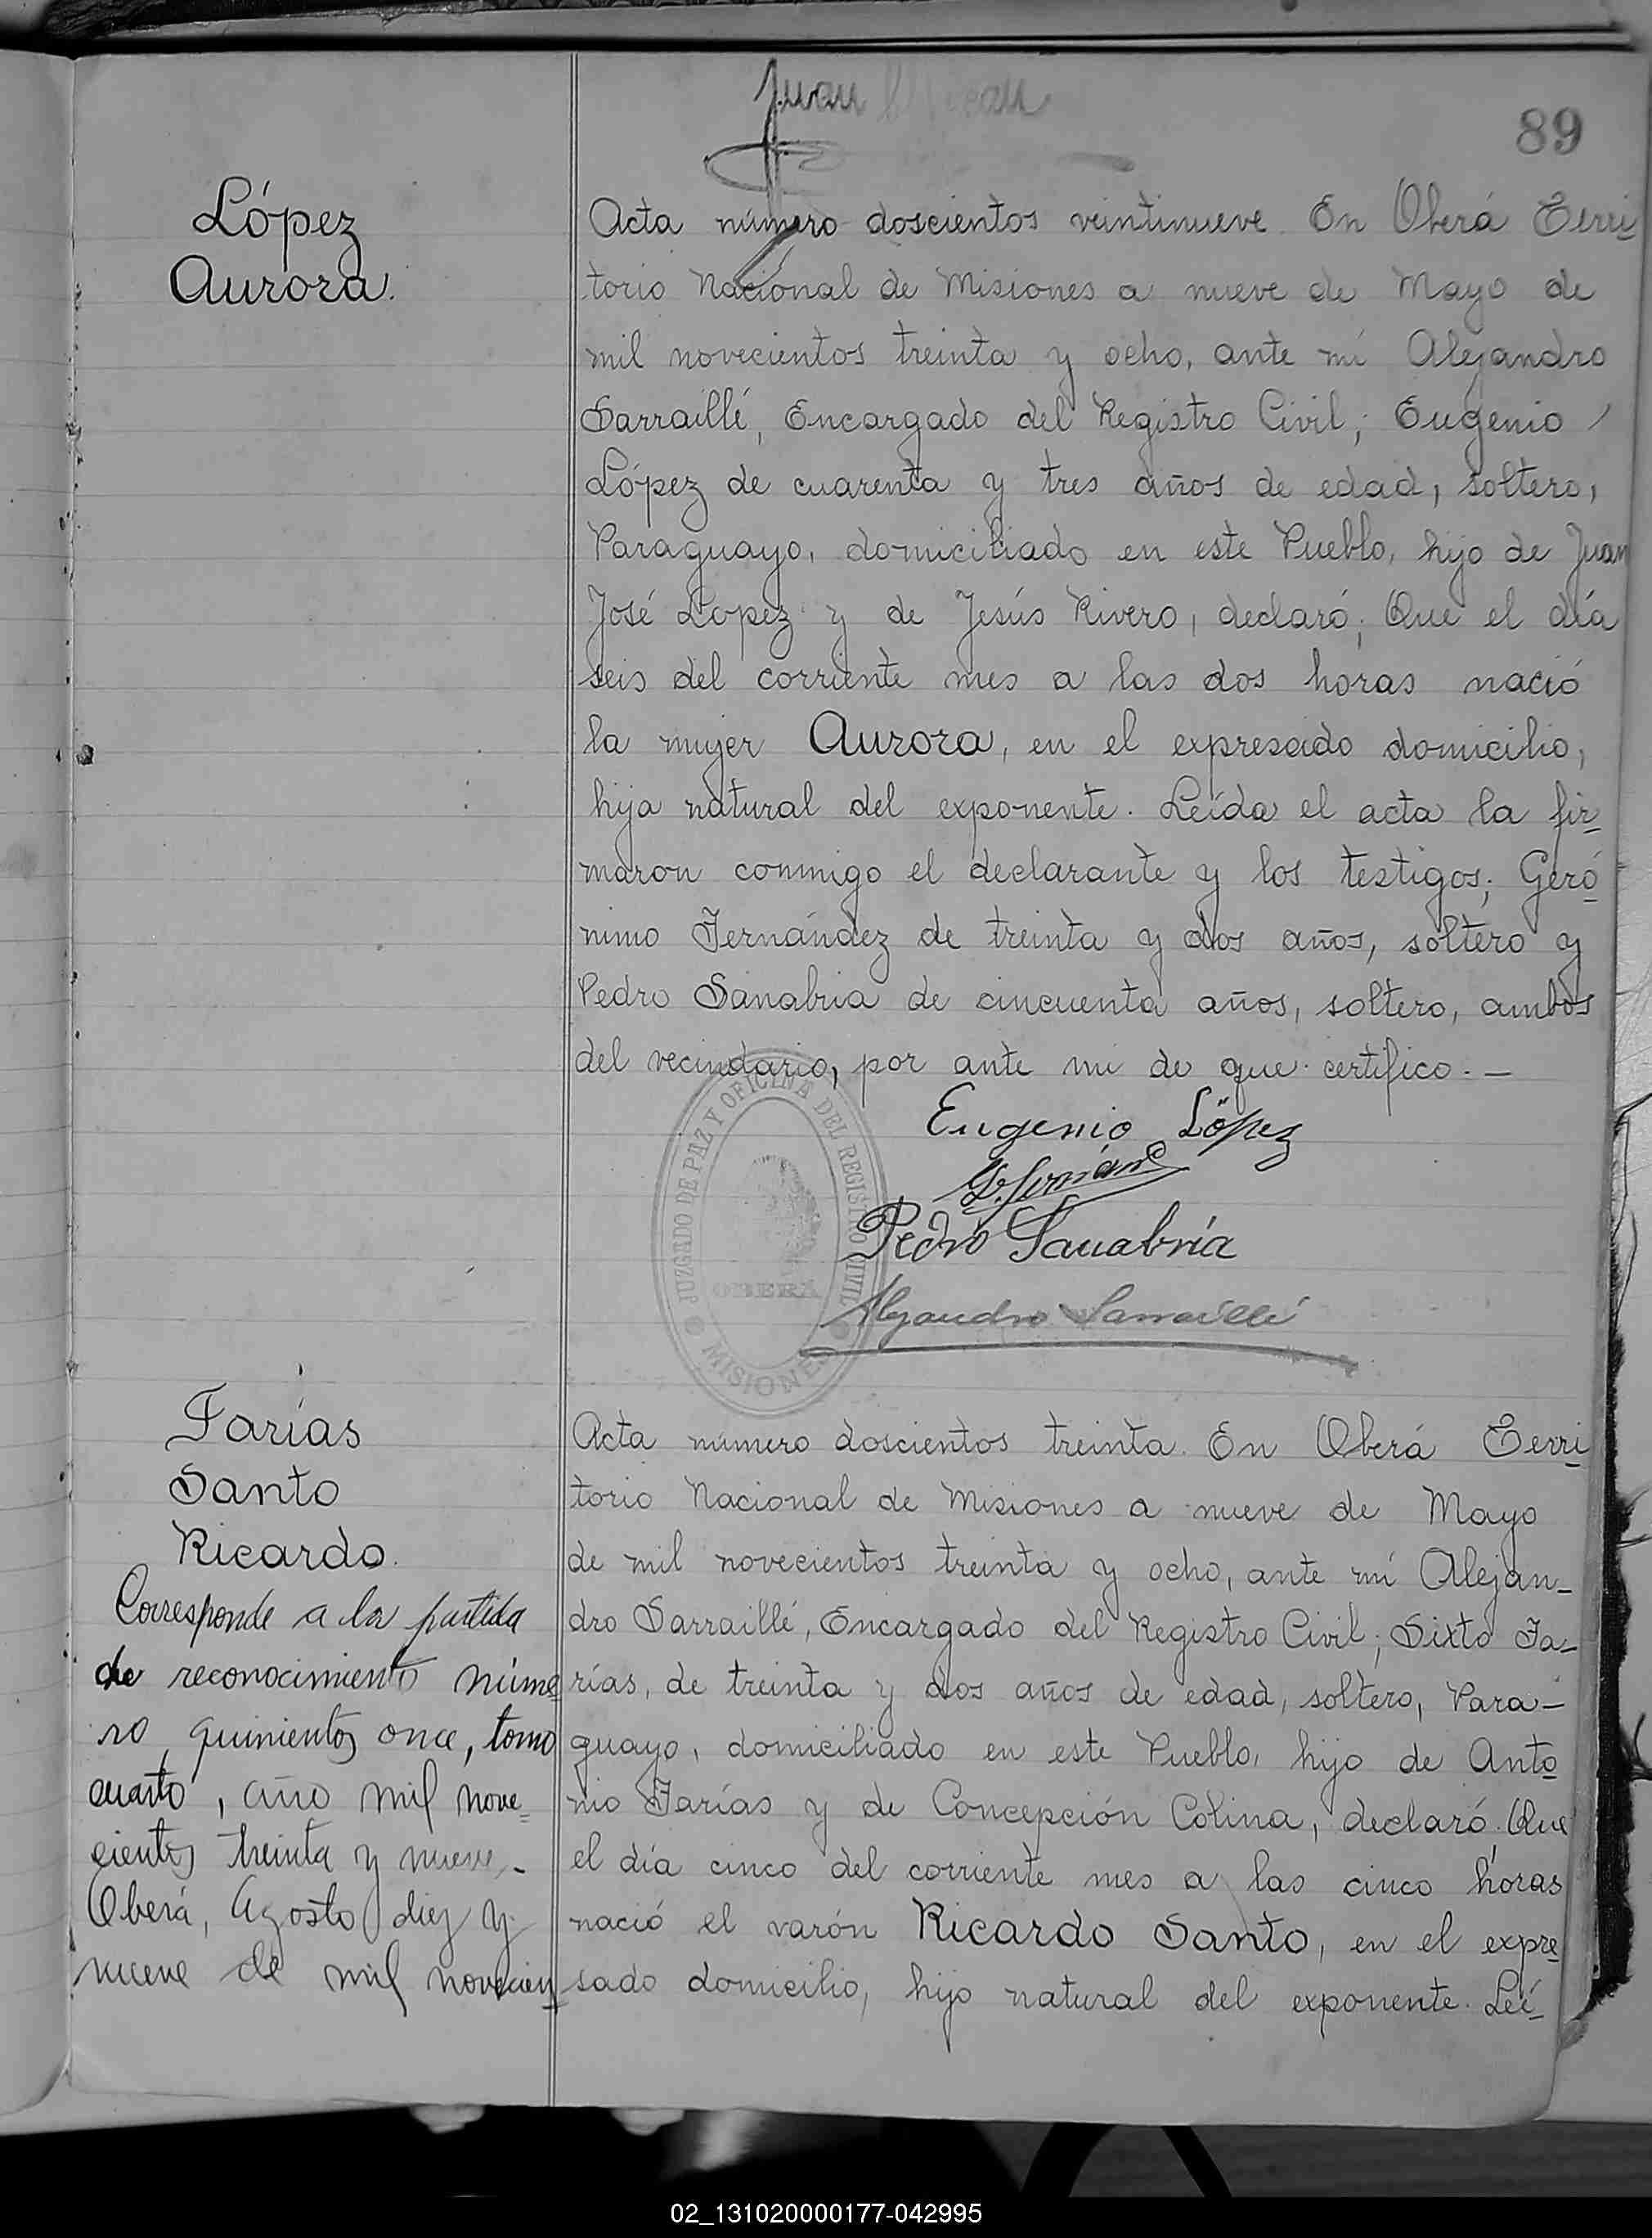 Juan
89
López
Aurora.
Acta número doscientos veintinueve. En Oberá Terri
torio Nacional de Misiones a nueve de Mayo de
mil novecientos treinta y ocho, ante mí Alejandro
Sarraillé, Encargado del Registro Civil; Eugenio
López de cuarenta y tres años de edad, soltero,
Paraguayo, domiciliado en este Pueblo, hijo de Juan
José Lopez y de Jesús Rivero, declaró; Que el día
seis del corriente mes a las dos horas nació
la mujer Aurora, en el expresado domicilio,
hija natural del exponente. Leída el acta la fir
maron conmigo el declarante y los testigos; Geró
nimo Fernández de treinta y dos años, soltero y
Pedro Sanabria de cincuenta años, soltero, ambos
del vecindario, por ante mi de que certifico. —
JUZGADO DE PAZ Y OFICINA DEL REGISTRO CIVIL
OBERÁ
MISIONES
Eugenio López
Pedro Sanabria
Alejandro Sarraillé
Farías
Santo
Ricardo.
Corresponde a la partida
de reconocimiento núme
ro quinientos once, tomo
cuarto, año mil nove=
cientos treinta y nueve.-
Oberá, Agosto diez y
nueve de mil novecien
Acta número doscientos treinta. En Oberá Terri
torio Nacional de Misiones a nueve de Mayo
de mil novecientos treinta y ocho, ante mí Alejan-
dro Sarraillé, Encargado del Registro Civil; Sixto Fa-
rías, de treinta y dos años de edad, soltero, Para-
guayo, domiciliado en este Pueblo, hijo de Anto
nio Farías y de Concepción Colina, declaró; Que
el día cinco del corriente mes a las cinco horas
nació el varón Ricardo Santo, en el expre
sado domicilio, hijo natural del exponente. Leí-
02_131020000177-042995